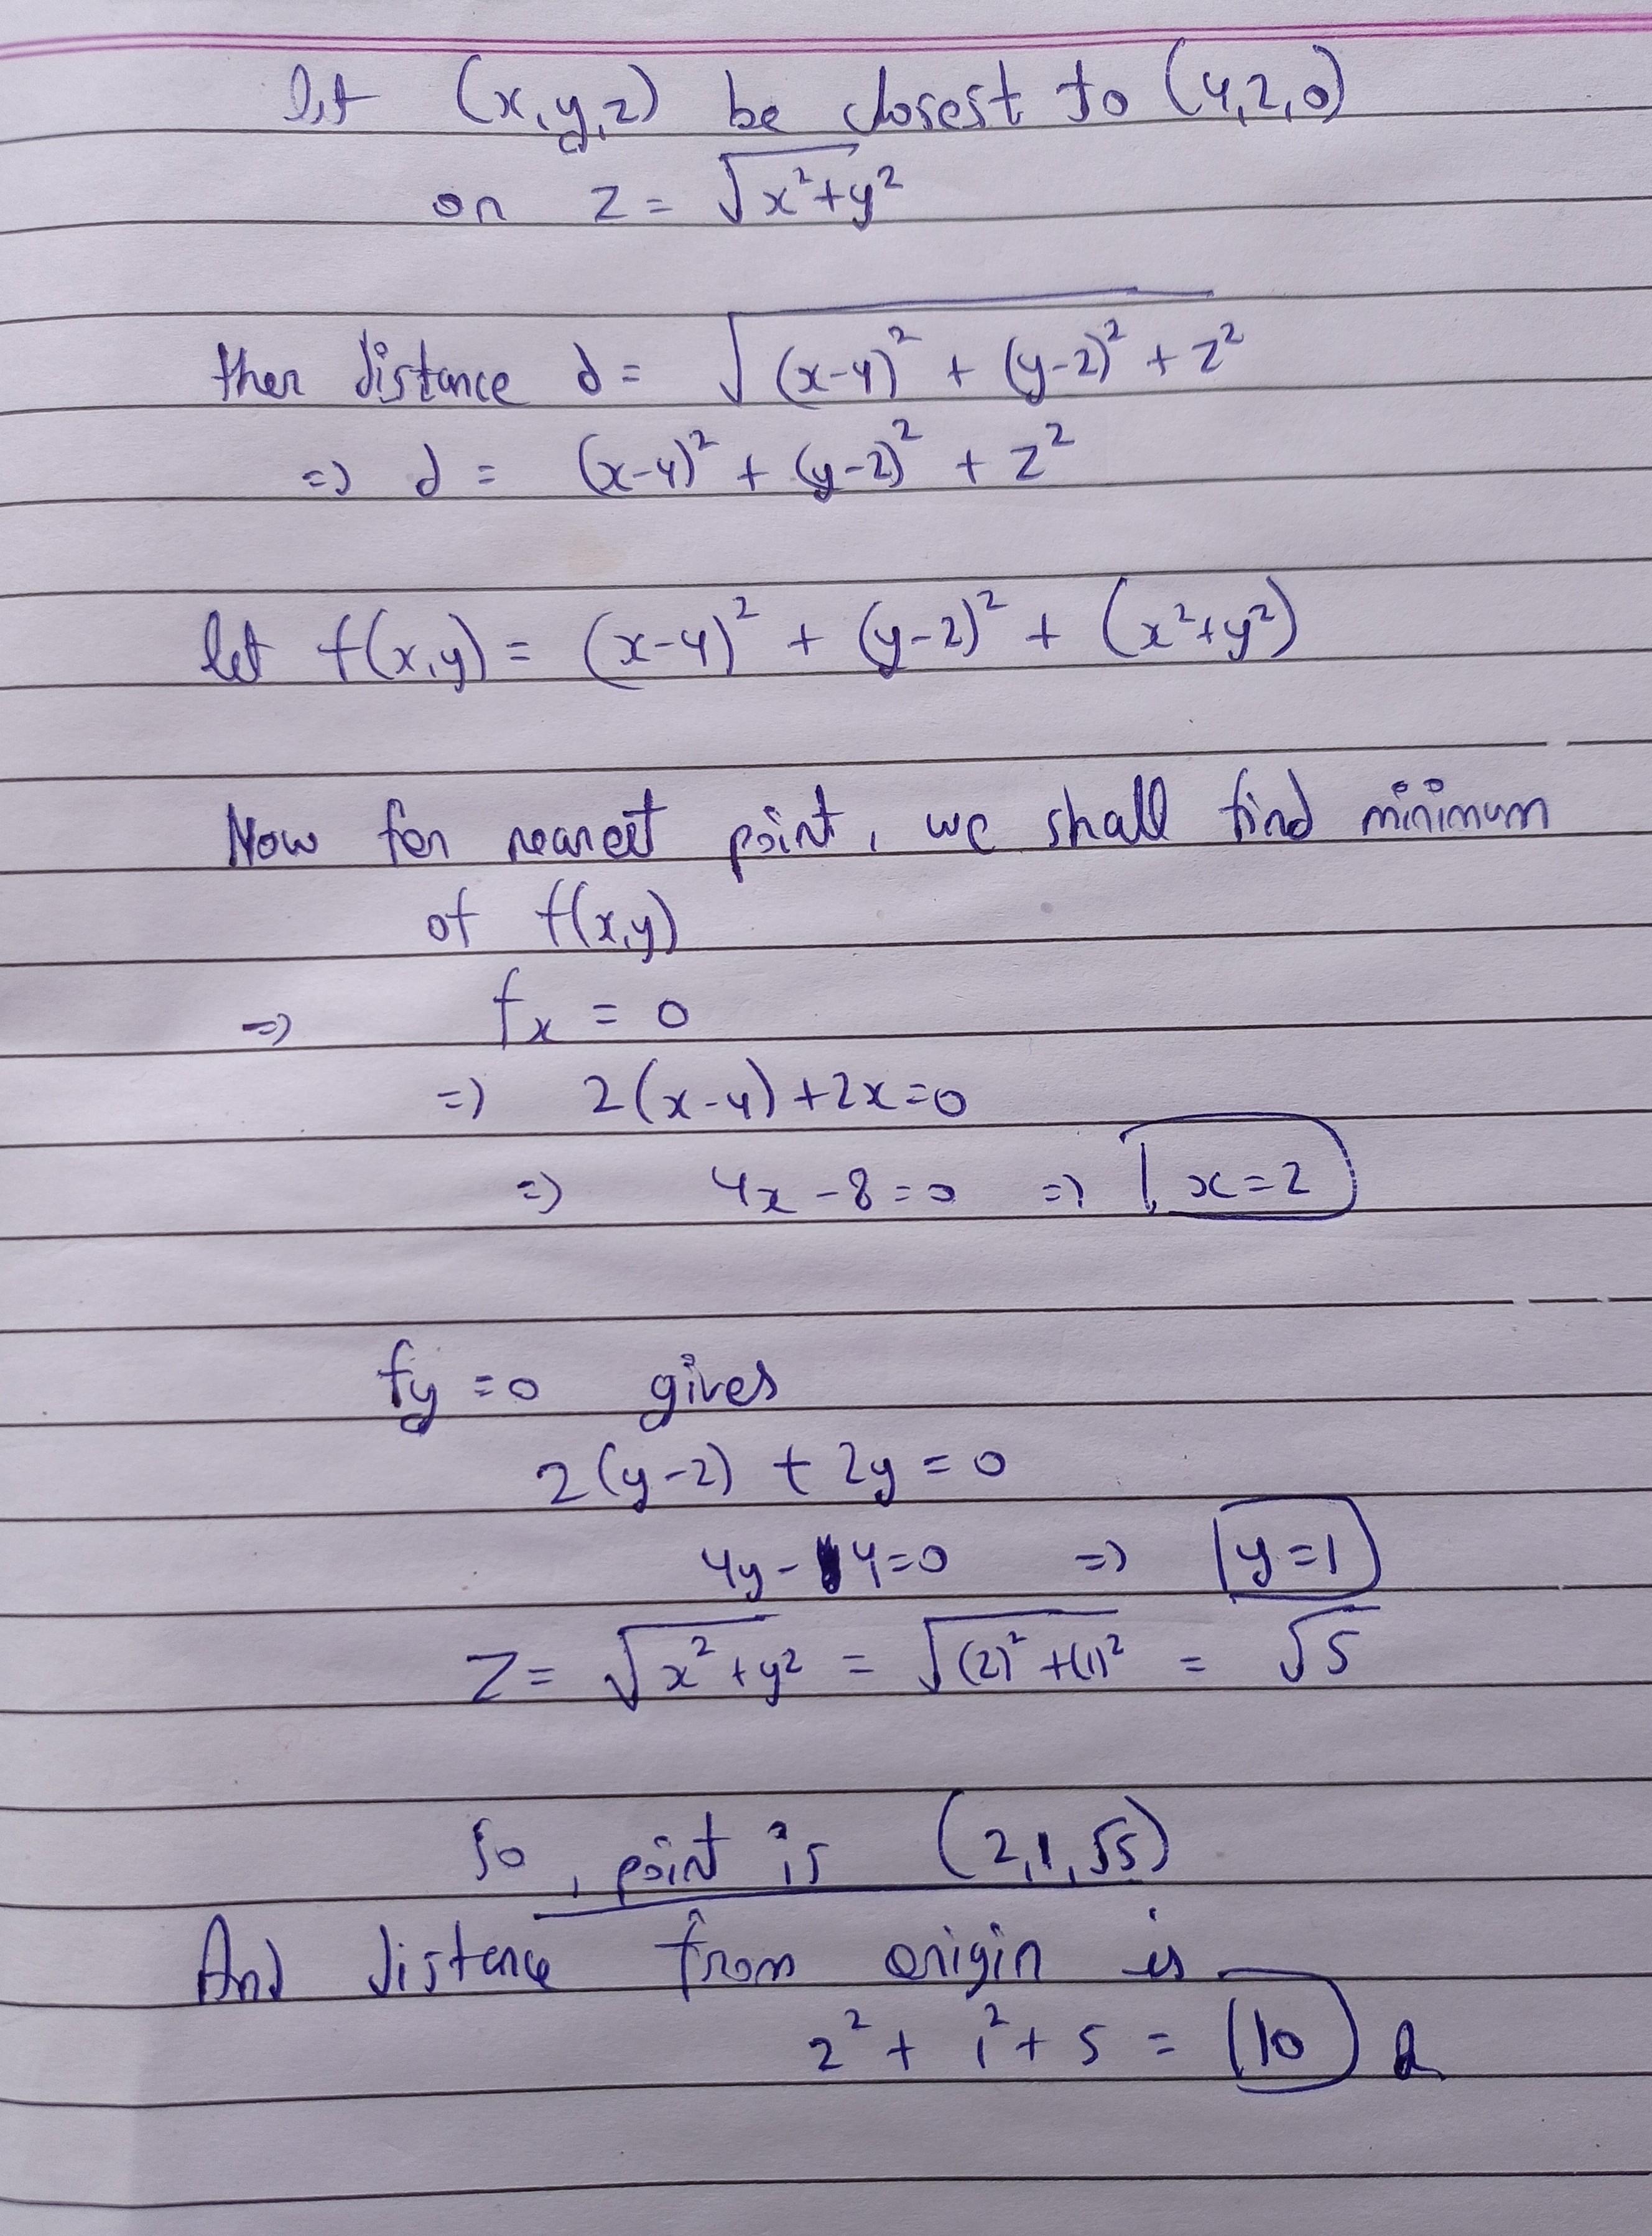 let (x,y,z) be closest to (4,2,0)
on z = √x²+y²
then distance d = √(x-4)² + (y-2)² + z²
=> d = (x-4)² + (y-2)² + z²
let f(x,y) = (x-4)² + (y-2)² + (x²+y²)
Now for nearest point, we shall find minimum
of f(x,y)
=> fx = 0
=> 2(x-4)+2x=0
=> 4x-8=0 => x=2
fy=0 gives
2(y-2) + 2y = 0
4y-4=0 => y=1
z = √x²+y² = √(2)²+(1)² = √5
So, point is (2,1,√5)
And distance from origin is
2² + 1² + 5 = 10